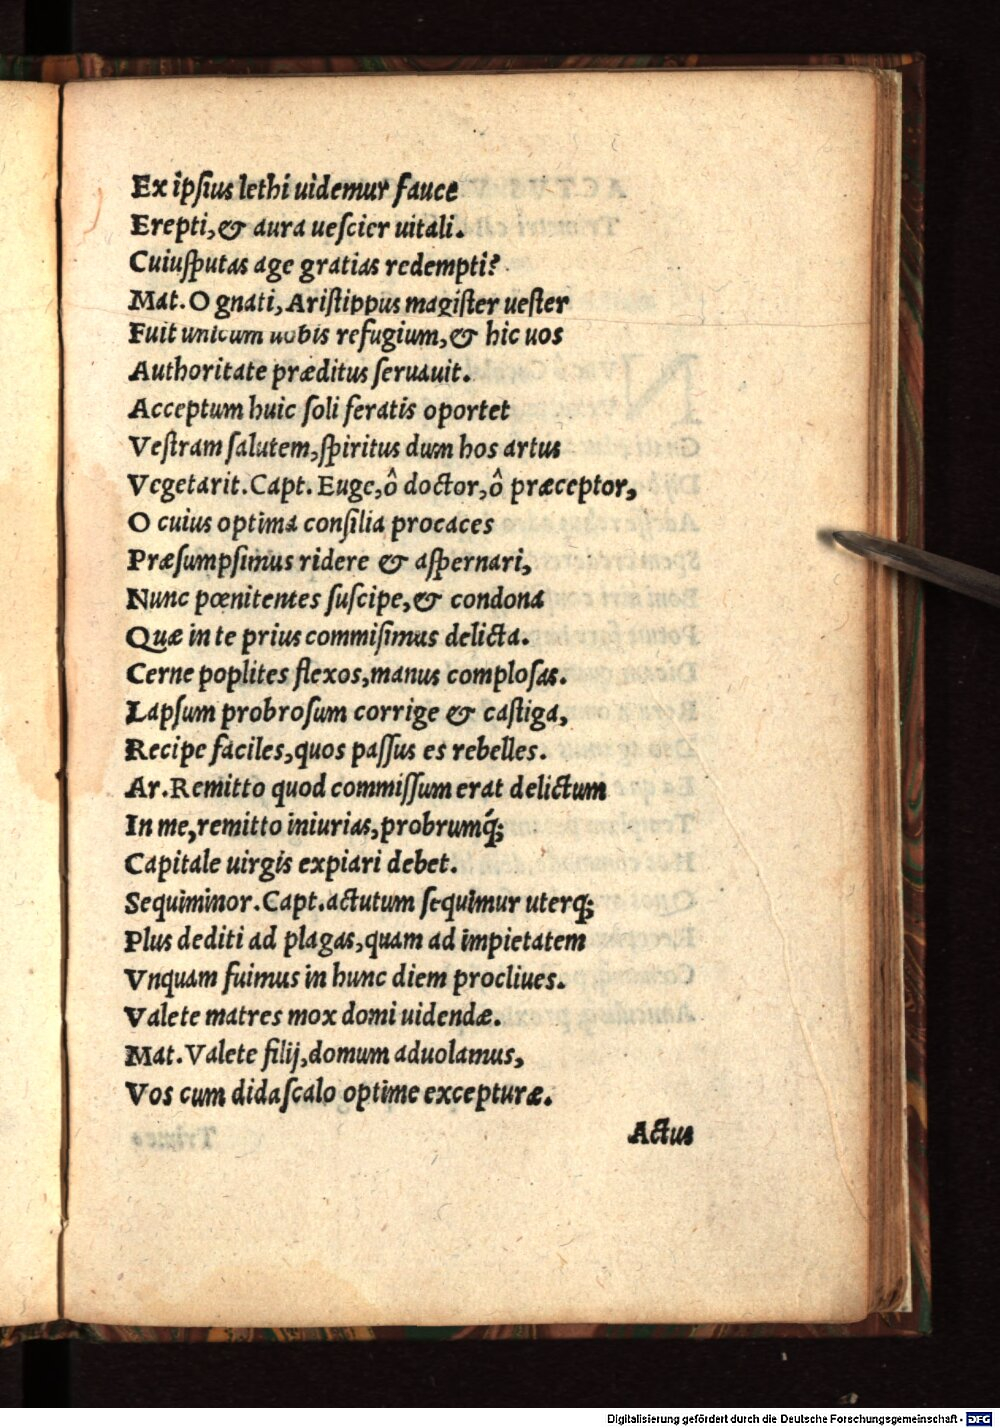 Ex ipſius lethi uidemur fauce
Erepti, & aura ueſcier uitali.
Cuiuſputas age gratias redempti?
Mat. O gnati, Ariſtippus magiſter ueſter
Fuit unicum uobis refugium, & hic uos
Authoritate præditus ſeruauit.
Acceptum huic ſoli feratis oportet
Veſtram ſalutem, ſpiritus dum hos artus
Vegetarit. Capt. Euge, ô doctor, ô præceptor,
O cuius optima conſilia procaces
Præſumpſimus ridere & aſpernari,
Nunc pœnitentes ſuſcipe, & condona
Quæ in te prius commiſimus delicta.
Cerne poplites flexos, manus complosas.
Lapſum probroſum corrige & caſtiga,
Recipe faciles, quos paſſus es rebelles.
Ar. Remitto quod commiſſum erat delictum
In me, remitto iniurias, probrumq́;
Capitale uirgis expiari debet.
Sequiminor. Capt. actutum ſequimur uterq;
Plus dediti ad plagas, quam ad impietatem
Vnquam fuimus in hunc diem procliues.
Valete matres mox domi uidendæ.
Mat. Valete filij, domum aduolamus,
Vos cum didaſcalo optime excepturæ.
Actus
Digitalisierung gefördert durch die Deutsche Forschungsgemeinschaft - DFG